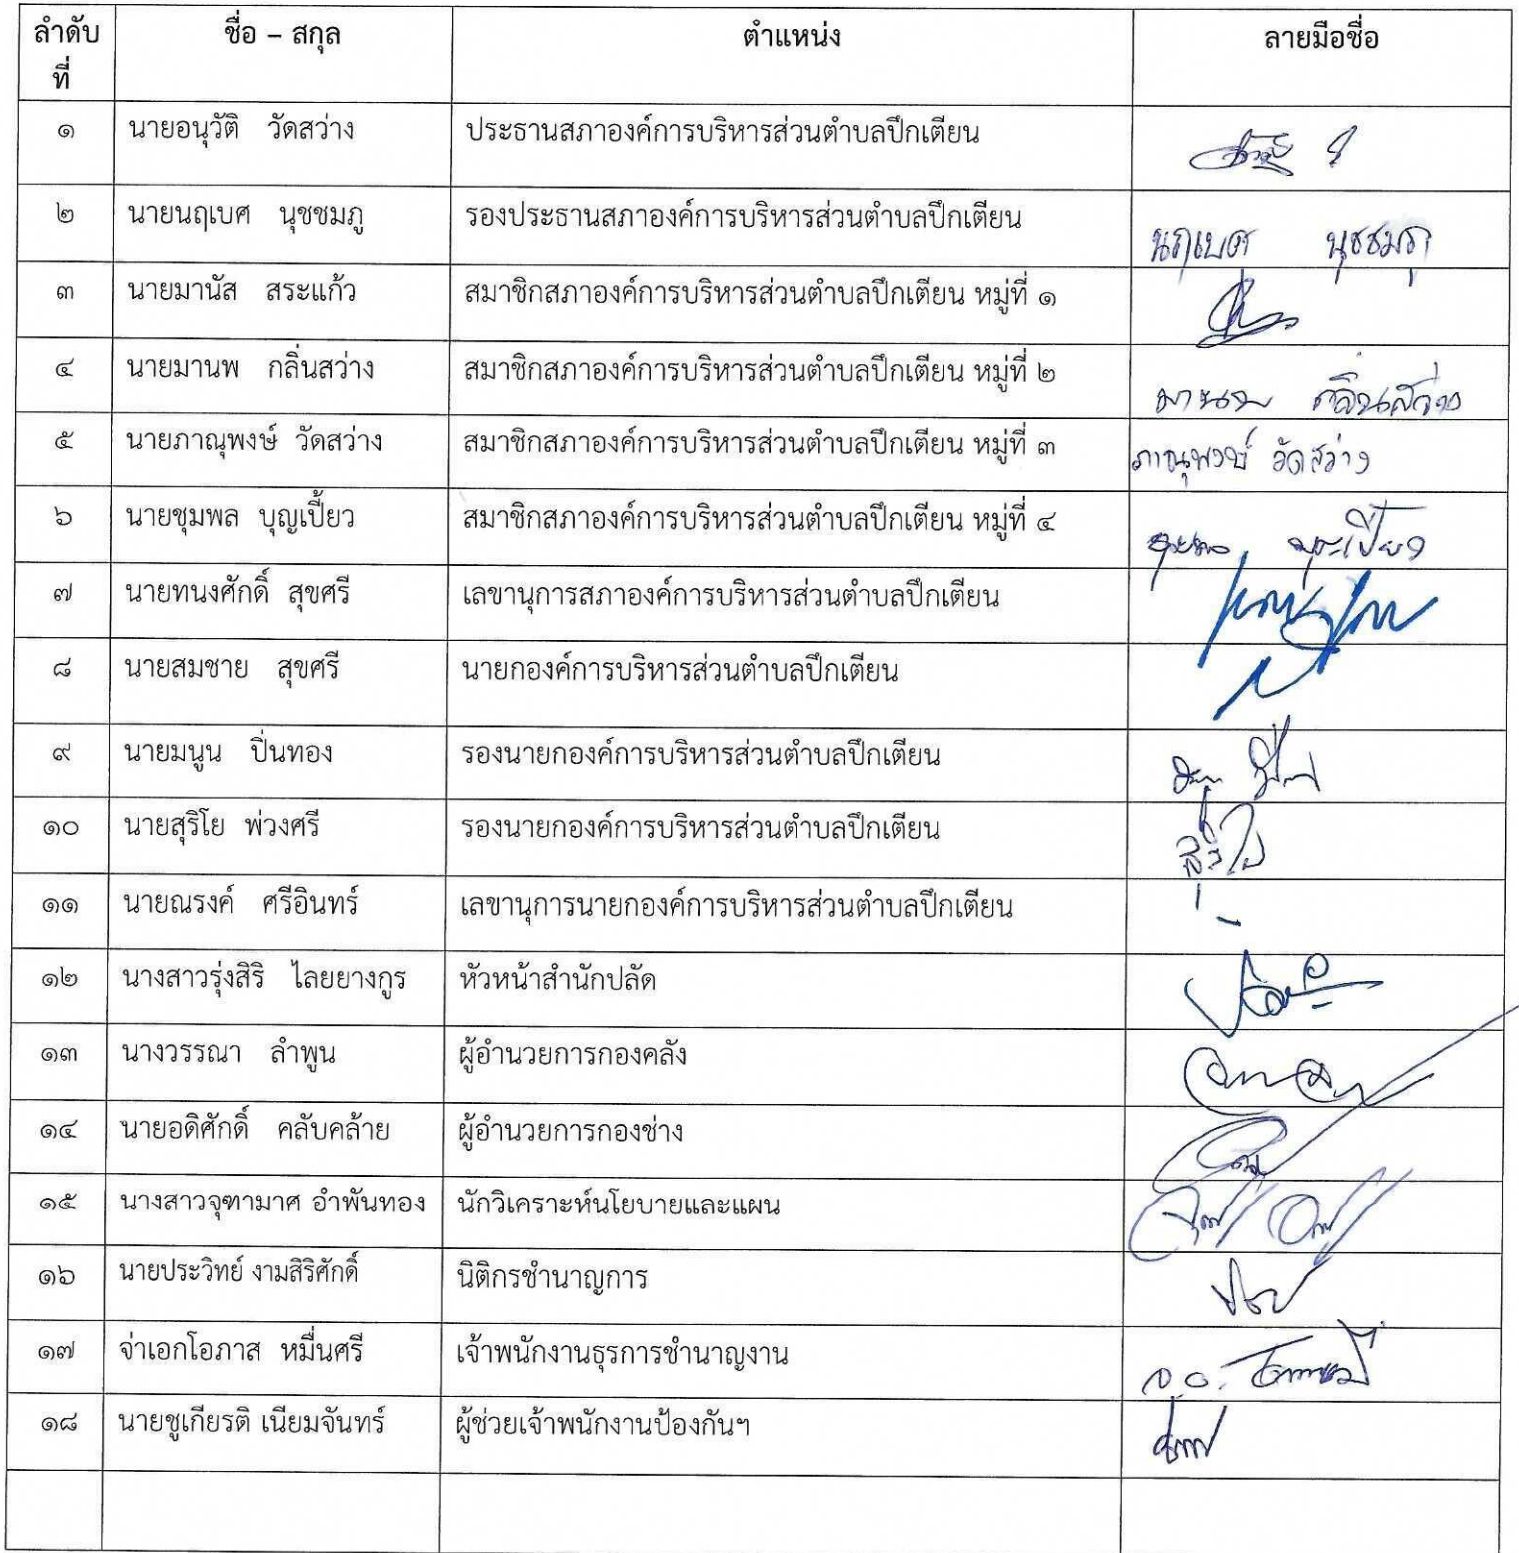 ลำดับที่ ชื่อ – สกุล ตำแหน่ง ลายมือชื่อ
๑ นายอนุวัติ วัดสว่าง ประธานสภาองค์การบริหารส่วนตำบลปึกเตียน
๒ นายนฤเบศ นุชชมภู รองประธานสภาองค์การบริหารส่วนตำบลปึกเตียน นฤเบศ นุชชมภู
๓ นายมานัส สระแก้ว สมาชิกสภาองค์การบริหารส่วนตำบลปึกเตียน หมู่ที่ ๑
๔ นายมานพ กลิ่นสว่าง สมาชิกสภาองค์การบริหารส่วนตำบลปึกเตียน หมู่ที่ ๒ มานพ กลิ่นสว่าง
๕ นายภาณุพงษ์ วัดสว่าง สมาชิกสภาองค์การบริหารส่วนตำบลปึกเตียน หมู่ที่ ๓ ภาณุพงษ์ วัดสว่าง
๖ นายชุมพล บุญเปี้ยว สมาชิกสภาองค์การบริหารส่วนตำบลปึกเตียน หมู่ที่ ๔
๗ นายทนงศักดิ์ สุขศรี เลขานุการสภาองค์การบริหารส่วนตำบลปึกเตียน
๘ นายสมชาย สุขศรี นายกองค์การบริหารส่วนตำบลปึกเตียน
๙ นายมนูน ปิ่นทอง รองนายกองค์การบริหารส่วนตำบลปึกเตียน
๑๐ นายสุริโย พ่วงศรี รองนายกองค์การบริหารส่วนตำบลปึกเตียน
๑๑ นายณรงค์ ศรีอินทร์ เลขานุการนายกองค์การบริหารส่วนตำบลปึกเตียน
๑๒ นางสาวรุ่งสิริ ไลยยางกูร หัวหน้าสำนักปลัด
๑๓ นางวรรณา ลำพูน ผู้อำนวยการกองคลัง
๑๔ นายอดิศักดิ์ คลับคล้าย ผู้อำนวยการกองช่าง
๑๕ นางสาวจุฑามาศ อำพันทอง นักวิเคราะห์นโยบายและแผน
๑๖ นายประวิทย์ งามสิริศักดิ์ นิติกรชำนาญการ
๑๗ จ่าเอกโอภาส หมื่นศรี เจ้าพนักงานธุรการชำนาญงาน
๑๘ นายชูเกียรติ เนียมจันทร์ ผู้ช่วยเจ้าพนักงานป้องกันฯ